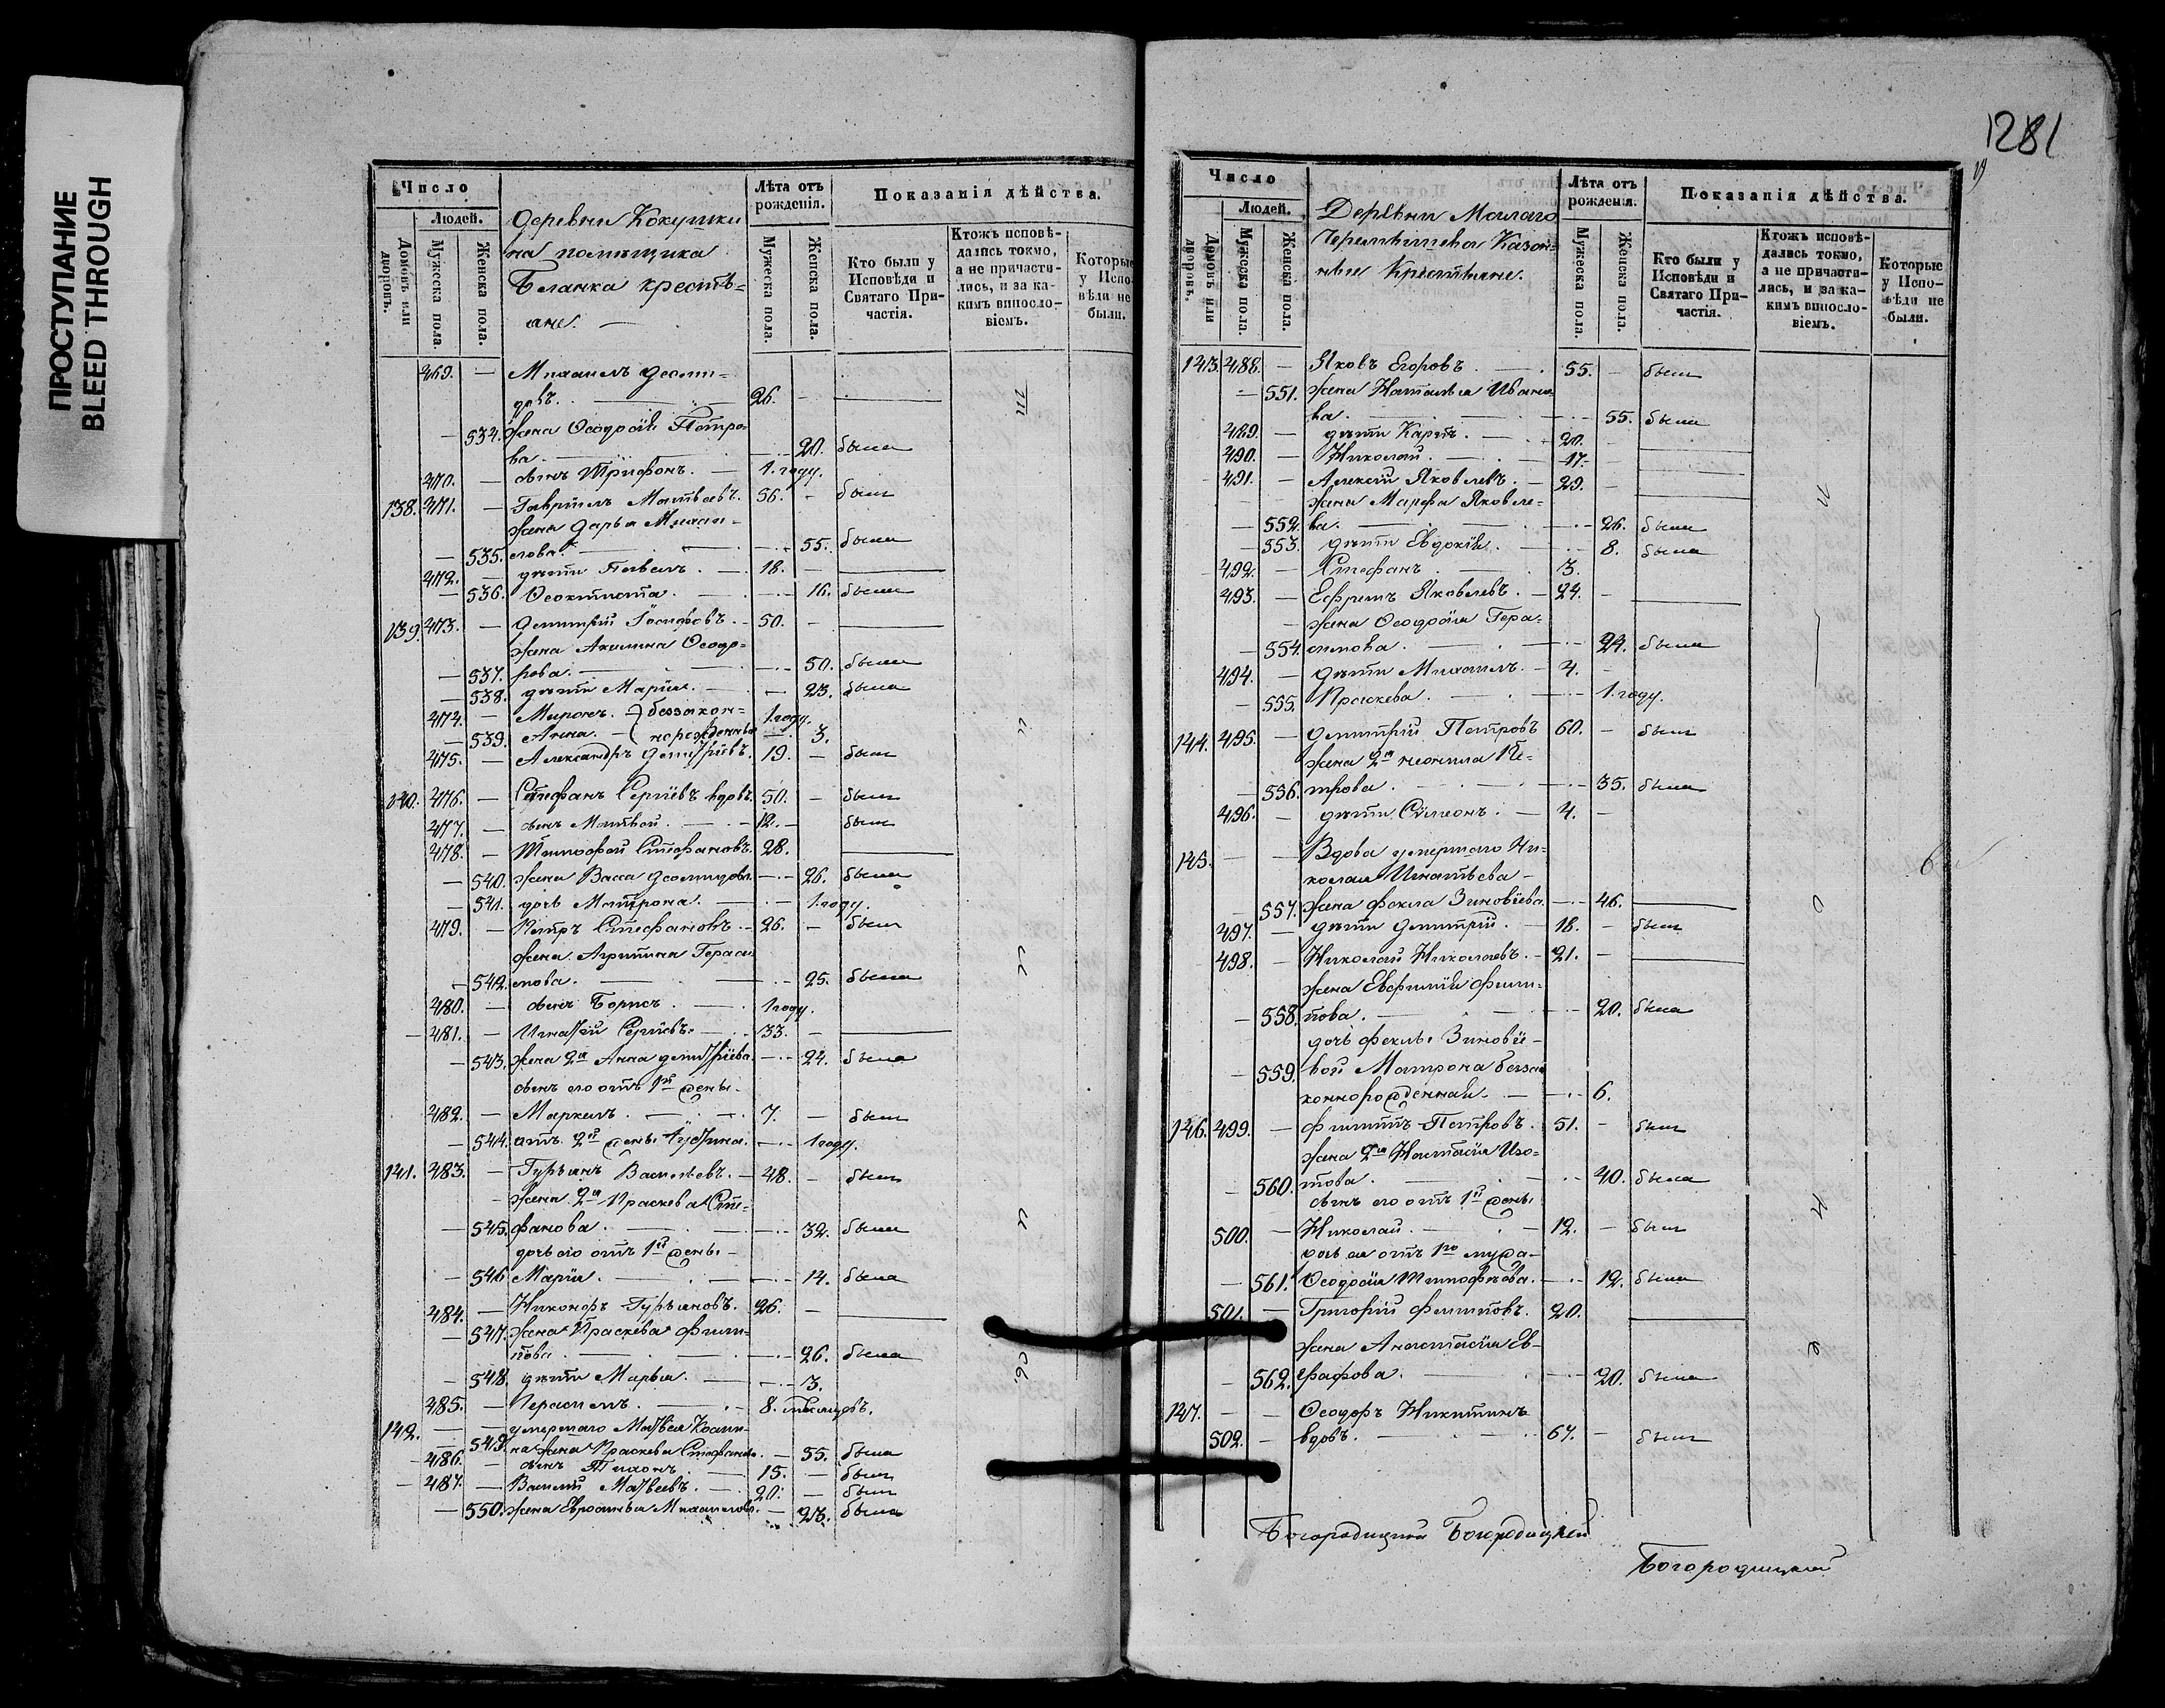 ПРОСТУПАНИЕ
BLEED THROUGH
Число
Людей.
Домовъ или дворовъ.
Мужеска пола.
Женска пола.
Деревни Кокушки
на помѣщика
Бланка крестья=
ане. —
Лѣта отъ рожденія.
Мужеска пола.
Женска пола.
Показанія дѣйства.
Кто были у Исповѣди и Святаго Причастія.
Ктожъ исповѣдались токмо, а не причастились, и за какимъ винословіемъ.
Которые у Исповѣди не были.
469. — Михаилъ Деоми=
довъ. — 26. —
— 534. жена Ѳеодосія Петро=
ва. — 20. была
470. — сынъ Трифонъ. — 1. году.
138. 471. — Гавріилъ Матвѣевъ. 56. — былъ
жена Дарья Михаи=
— 535. лова. — 55. была
472. — дѣти Павелъ. — 18. —
— 536. Ѳеоктиста. — 16. была
139. 473. — Димитрій Іосифовъ. — 50. —
жена Акилина Ѳеодо=
— 537. рова. — 50. была
— 538. дѣти Марія. — 23. была
474. — Миронъ. — беззакон= 1. году.
— 539. Анна. — норожденные — 3.
475. — Александръ Димитріевъ. 19. — былъ
140. 476. — Стефанъ Сергіевъ вдовъ. 50. — былъ
477. — сынъ Матвей. — 12. — былъ
478. — Тимофей Стефановъ. 28.
— 540. жена Васса Деомидова. — 26. была
— 541. дочь Матрона. — 1. году.
479. — Петръ Стефановъ. — 26. — былъ
жена Агрипина Гераси
— 542. мова. — 25. была
480. — сынъ Борисъ. — 1 году.
— 481. — Игнатій Сергіевъ. — 33. —
— 543. жена 2я Анна Димитріева. — 24. была
сынъ его отъ 1й жены.
482. — Маркелъ. — 7. — былъ
— 544. отъ 2й жены Іустина. — 1 году.
141. 483. — Гурьянъ Васильевъ. — 48. — былъ
— жена 2я Праскева Сте=
— 545. фанова. — 32. была
дочь его отъ 1й жены —
— 546 Марія. — 14. была
484. — Никоноръ Гурьяновъ. 26. —
— 547. жена Праскева Филип=
пова. — 26. была
— 548. дѣти Марѳа. — 3.
485. — Герасимъ. — 8. мѣсяцевъ.
142. — умершаго Матвея
— 549. жена Праскева Стефанова. — 55. была
— 486. — сынъ Тихонъ. — 15. — былъ
— 487. — Василій Матвеевъ. — 20. — былъ
— 550. жена Евросинья Михаилова. — 23. была
1281
Число
Людей.
Домовъ или дворовъ.
Мужеска пола.
Женска пола.
Деревни Малаго
Черемышева Казен=
ные Крестьяне.
Лѣта отъ рожденія.
Мужеска пола.
Женска пола.
Показанія дѣйства.
Кто были у Исповѣди и Святаго Причастія.
Ктожъ исповѣдались токмо, а не причастились, и за какимъ винословіемъ.
Которые у Исповѣди не были.
143. 488. — Яковъ Егоровъ. — 55. — былъ
— 551. жена Наталья Ивано=
ва. — 55. была
489. — дѣти Карпъ. — 20.
490. — Николай. — 17. —
491. — Алексій Яковлевъ. — 29. —
жена Марѳа Яковле=
— 552. ва. — 26. была
— 553. дѣти Евдокія. — 8. была
492. — Стефанъ. — 3.
493. — Ефремъ Яковлевъ. — 24. —
— жена Ѳеодосія Гера=
— 554. симова. — 24. была
494. — дѣти Михаилъ. — 4. —
— 555. Праскева. — 1. году.
144. 495. — Димитрій Петровъ 60. — былъ
жена 2я Неонила Пе=
— 556. трова. — 35. была
496. — дѣти Сѵмеонъ. — 4. —
145. — — Вдова умершаго Ни=
колая Игнатьева —
— 557. жена Фекла Зиновіева. — 46.
497. — дѣти Димитрій. — 18. — былъ
498. — Николай Николаевъ. — 21. —
жена Евфимія Филип=
— 558. пова. — 20. была
дочь Феклы Зиновіе=
— 559. вой Матрона безза
коннорожденная. — 6.
146. 499. — Филиппъ Петровъ. 51. — былъ
жена 2я Настасія Изо=
— 560. това. — 40. была
сынъ его отъ 1й жены
500. — Николай. — 12. — былъ
дочь ея отъ 1го мужа —
— 561. Ѳеодосія Тимофѣева. — 12. была
501. — Григорій Филиповъ. 20.
жена Анастасія Ев=
— 562. графова. — 20. была
147. — — Ѳеодоръ Никитинъ
502. — вдовъ. — 67. — былъ
Богородицкій
Богородицкій